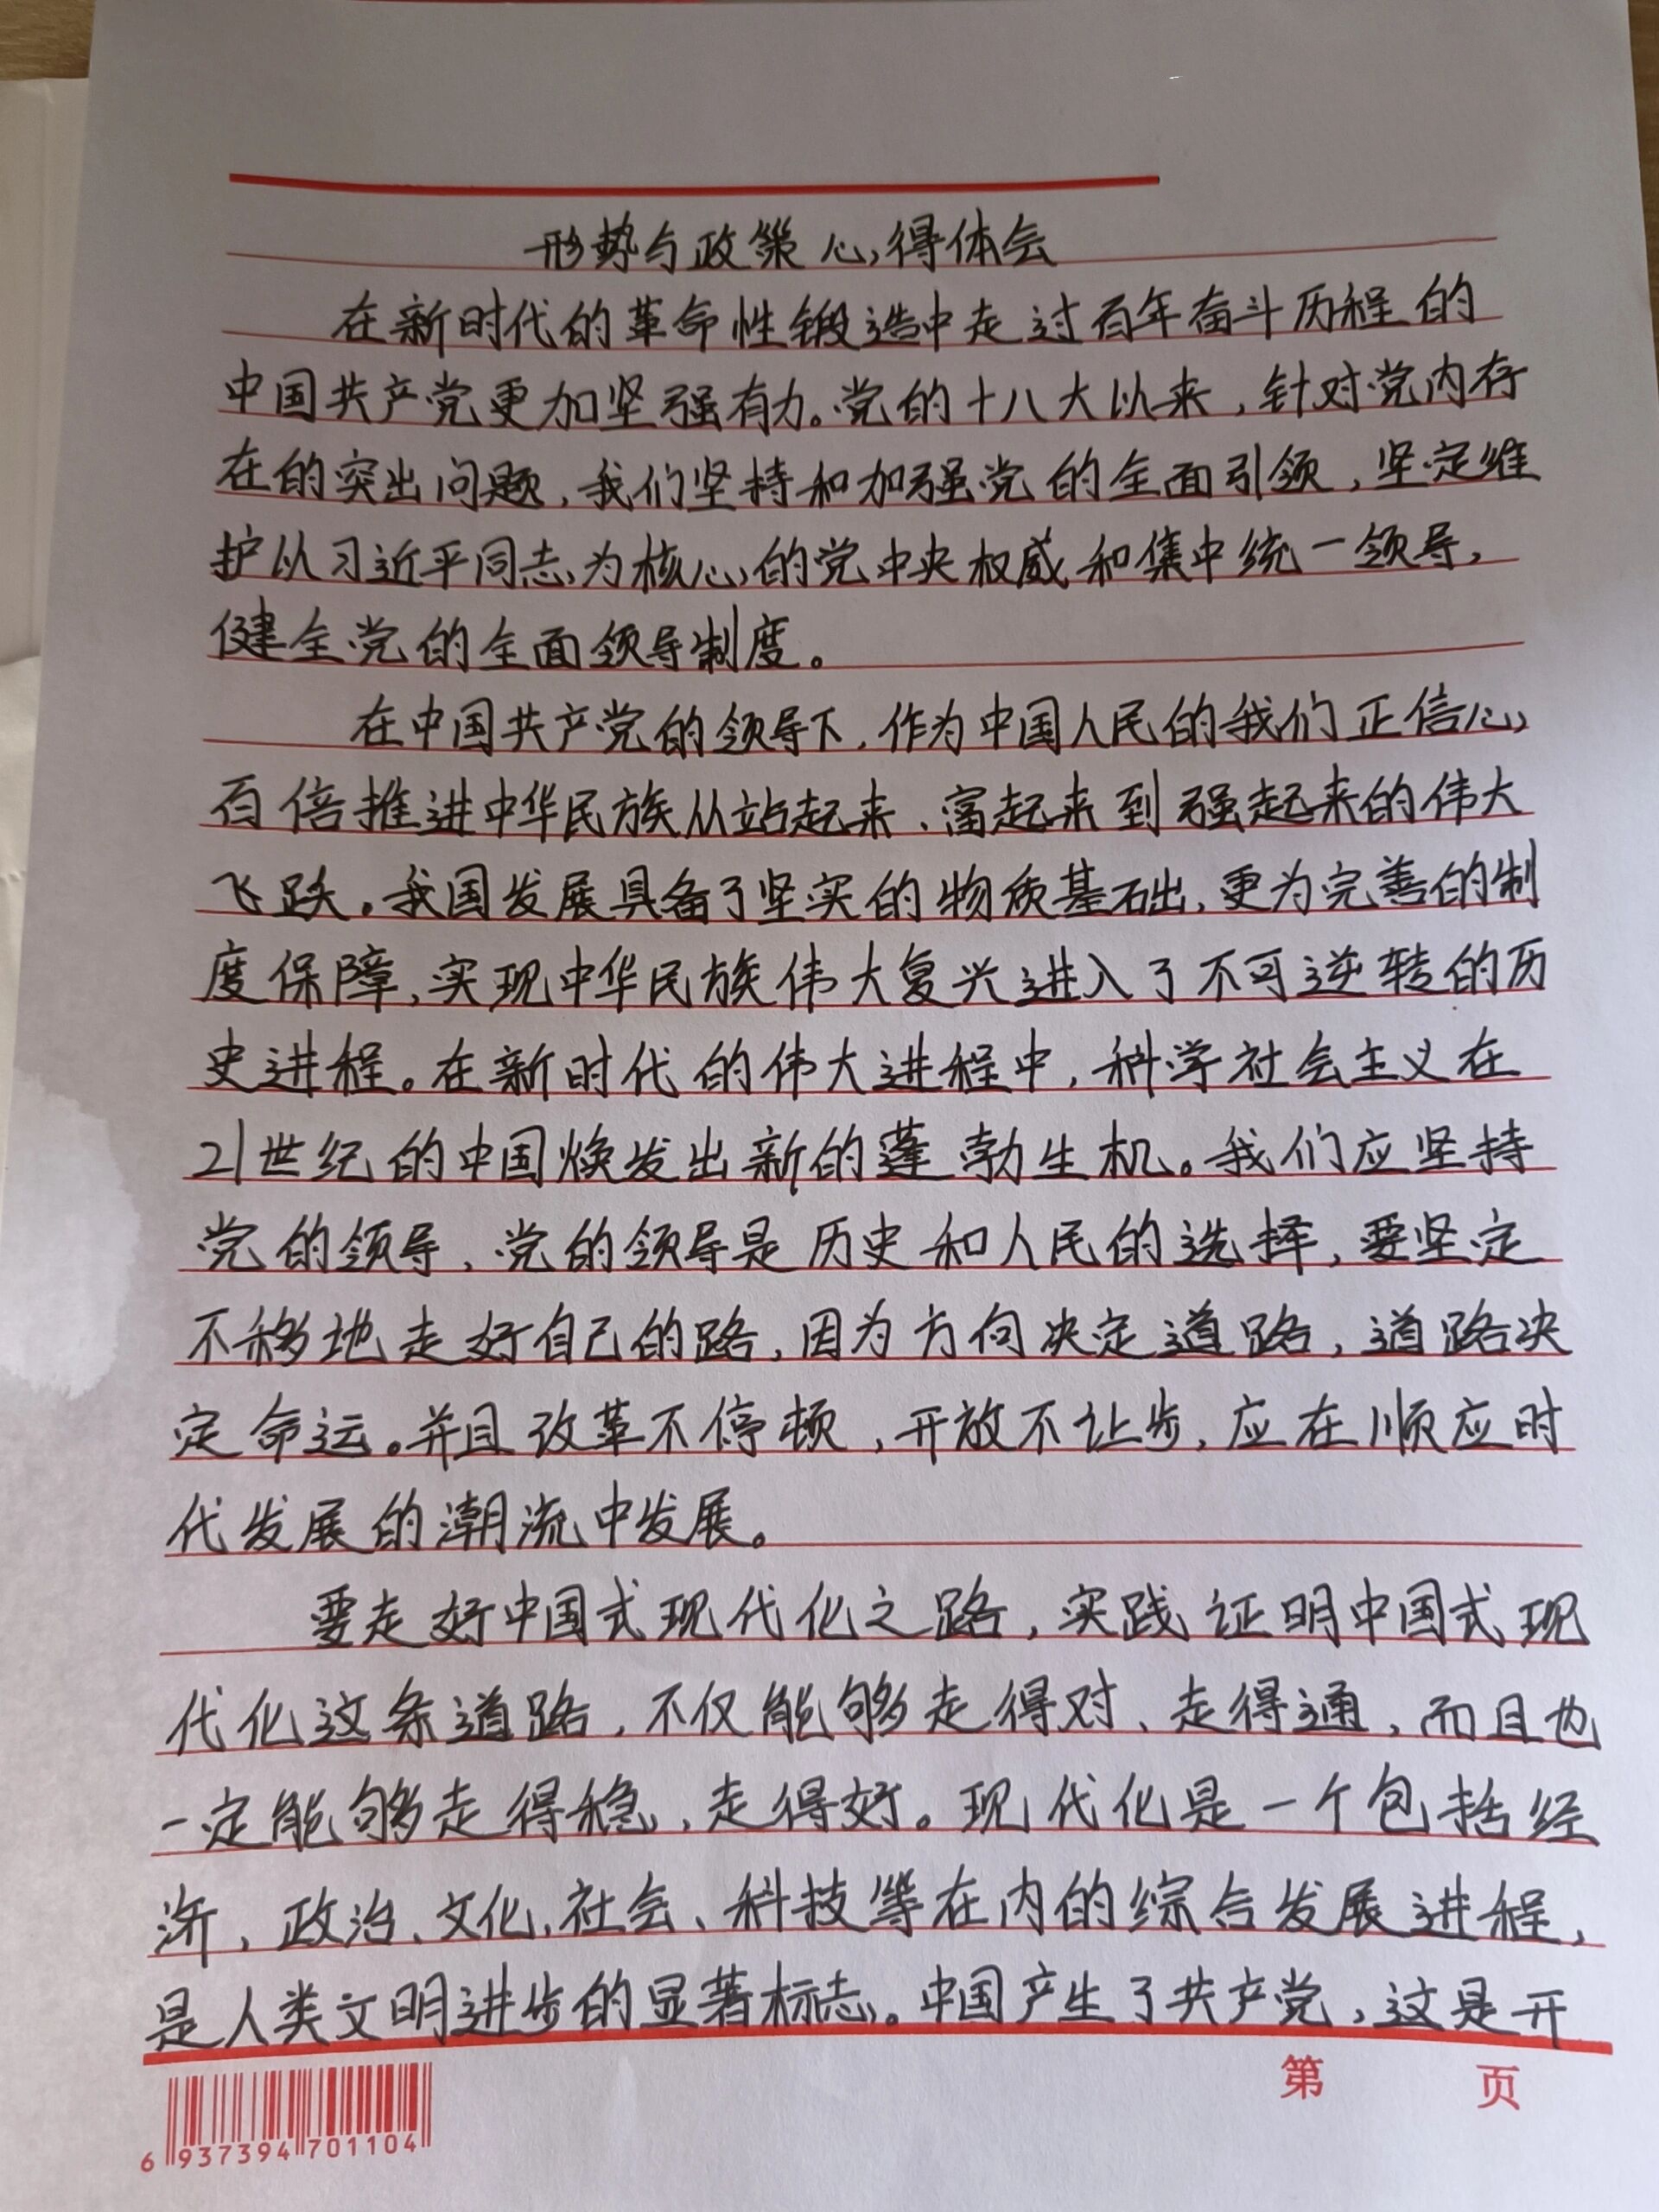 形势与政策心得体会
在新时代的革命性锻造中走过百年奋斗历程的
中国共产党更加坚强有力。党的十八大以来，针对党内存
在的突出问题，我们坚持和加强党的全面引领，坚定维
护以习近平同志为核心的党中央权威和集中统一领导，
健全党的全面领导制度。
在中国共产党的领导下，作为中国人民的我们正信心
百倍推进中华民族从站起来、富起来到强起来的伟大
飞跃。我国发展具备了坚实的物质基础，更为完善的制
度保障，实现中华民族伟大复兴进入了不可逆转的历
史进程。在新时代的伟大进程中，科学社会主义在
21世纪的中国焕发出新的蓬勃生机。我们应坚持
党的领导，党的领导是历史和人民的选择，要坚定
不移地走好自己的路，因为方向决定道路，道路决
定命运。并且改革不停顿，开放不让步，应在顺应时
代发展的潮流中发展。
要走好中国式现代化之路，实践证明中国式现
代化这条道路，不仅能够走得对、走得通，而且也
一定能够走得稳、走得好。现代化是一个包括经
济、政治、文化、社会、科技等在内的综合发展进程，
是人类文明进步的显著标志。中国产生了共产党，这是开
第 页
6 937394 701104